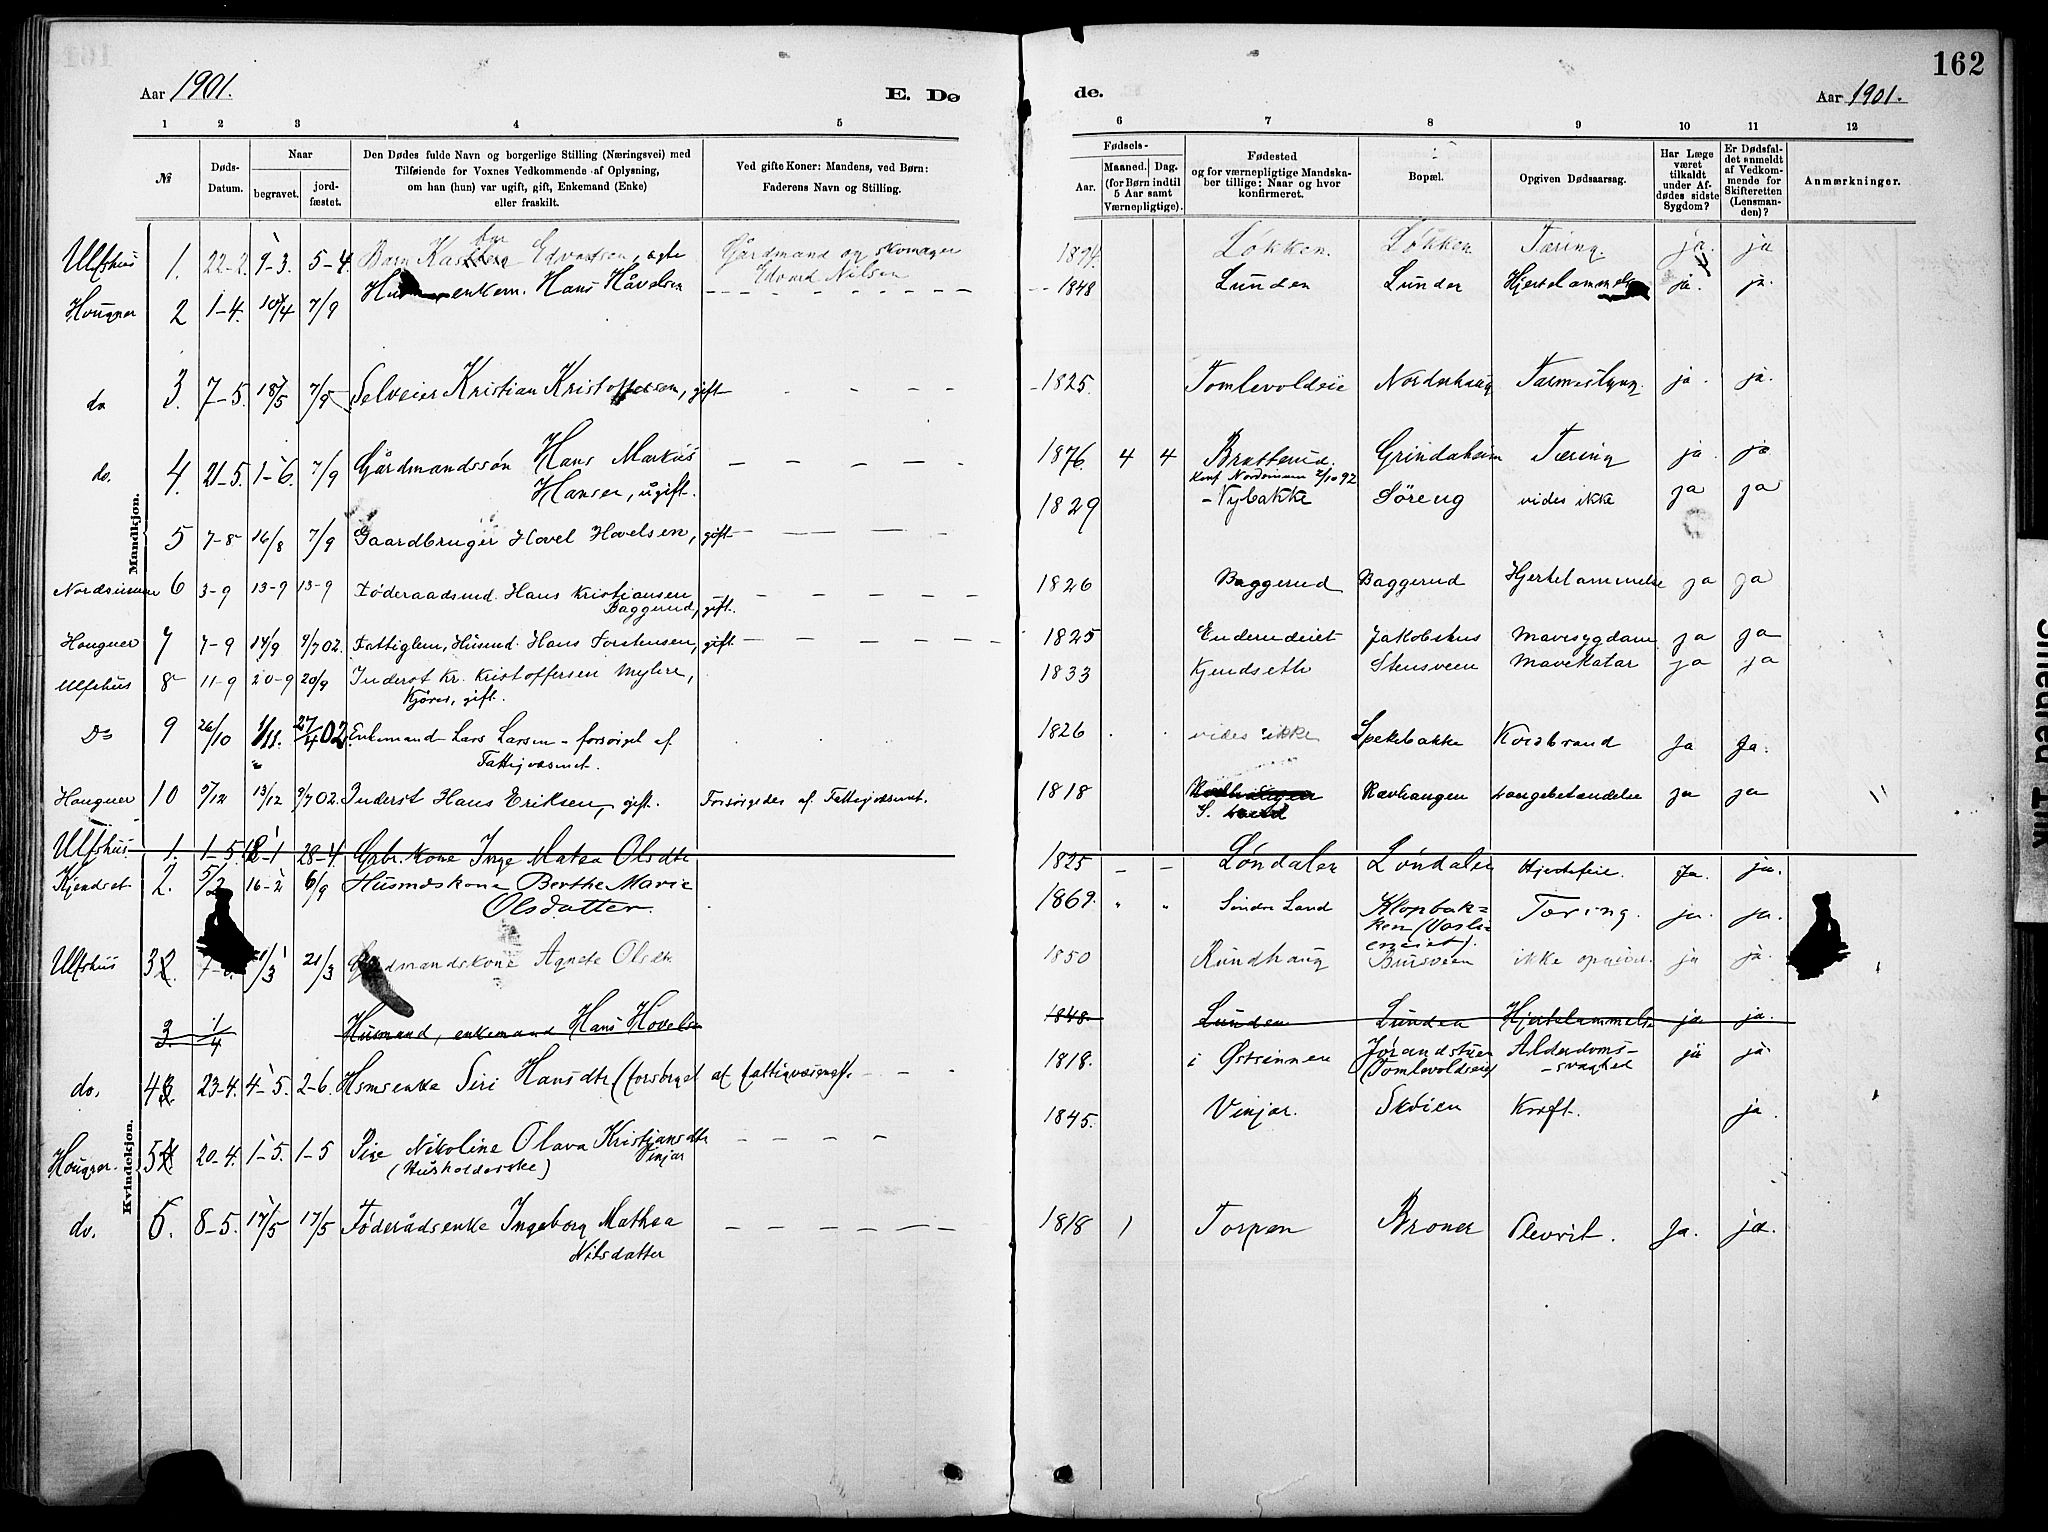 162
Aar 1901.
E. Dø
de.
Aar 1901.
1 2 3 4 5
6 7 8 9 10 11 12
№
Døds-
Datum.
Naar
begravet.
jord-
fæstet.
Den Dødes fulde Navn og borgerlige Stilling (Næringsvei) med
Tilføiende for Voxnes Vedkommende af Oplysning,
om han (hun) var ugift, gift, Enkemand (Enke)
eller fraskilt.
Ved gifte Koner: Mandens, ved Børn:
Faderens Navn og Stilling.
Fødsels-
Aar.
Maaned.
Dag.
(for Børn indtil
5 Aar samt
Værnepligtige).
Fødested
og for værnepligtige Mandska-
ber tillige: Naar og hvor
konfirmeret.
Bopæl.
Opgiven Dødsaarsag.
Har Læge
været
tilkaldt
under Af-
dødes sidste
Sygdom?
Er Dødsfal-
det anmeldt
af Vedkom-
mende for
Skifteretten
(Lensman-
den)?
Anmærkninger.
Mandkjøn.
Ulfshus 1. 22-2. 9-3. 5-4. Barn Edvardsen, ægte Gårdmand og skomager 1894. Løkken Løkken Tæring. ja. ja
Edvard Nilsen
Hougner 2 1-4. 10/4 7/9 enkem. Hans Håvelsen 1848 Lunden Lunden Hjertelammelse ja. ja.
do 3. 7-5. 18/5 7/9 Selveier Kristian Kristoffersen, gift 1825. Tomlevoldeie Norderhaug Tarmeslyng ja. ja.
do. 4. 21-5. 1-6. 7/9 Gårdmandssøn Hans Markus 1876. 4 4 Bratterud. Grindaheim Tæring ja. ja
Hansen, ugift. Konf. Nordsinnen 2/10 92
5 7-8 16/8 7/9 Gaardbruger Hovel Hovelsen, gift 1829 Nybakke Søreng vides ikke ja ja
Nordsinnen 6 3-9 13-9 13-9 Føderaadsmd. Hans Kristiansen 1826 Baggerud Baggerud Hjertelammelse ja ja
Baggerud, gift.
Hougner 7 7-9 14/9 9/7 02. Fattiglem, Husmd. Hans Torstensen, gift 1825 Enderudeiet Jakobshus Mavesygdom ja ja
Ulfshus 8 11-9 20-9 20/9 Inderst Kr. Kristoffersen Mylere, 1833 Kjendseth Stensveen Mavekatar ja ja
gift.
Do 9 26/10 1/11. 27/4 02. Enkemand Lars Larsen - forsørget af 1826 vides ikke Spekebakke Koldbrand Ja Ja.
Fattigvæsnet.
Hougner 10 5/12 13/12 9/7 02. Inderst Hans Eriksen, gift. Forsørgedes af Fattigvæsnet. 1818 Rævhaugen Lungebetændelse ja ja
S.
Kvindekjøn.
Ulfshus 1. 1-5. 28-4 Grbr. kone Inge Matea Olsdtr 1825 Løndalen Løndalen Hjertefeil. Ja. ja.
Kjendset 2. 5/2 16-2 6/9 Husmdskone Berthe Marie 1869. Søndre Land Klopbak- Tæring. ja. ja.
Olsdatter. ken (Vasli-
eneiet).
Ulfshus 3 21/3 Agnete Olsdtr 1850 Rundhaug Bursveen ikke opgivet. ja ja.
3. 1/4 Husmand, enkemand Hans Hovelsen 1848. Lunden Lunden Hjertelammelse ja ja.
do. 4 23-4. 4-5. 2-6. Hsmsenke Siri Hansdtr (forsørget af fattigvæsenet). 1818. i Østsinnen Jørandstuen Alderdoms- ja ja.
(Tomlevoldseie) -svaghed
Hougner. 5 20-4. 1-5. 1-5 Pige Nikoline Olava Kristiansdtr 1845. Vinjar. Skøien Kræft. ja.
(Husholderske) Vinjar
do. 6. 8-5. 17/5 17/5 Føderådsenke Ingeborg Mathea 1818 1 Torpen Broner Plevrit. Ja. ja.
Nilsdatter